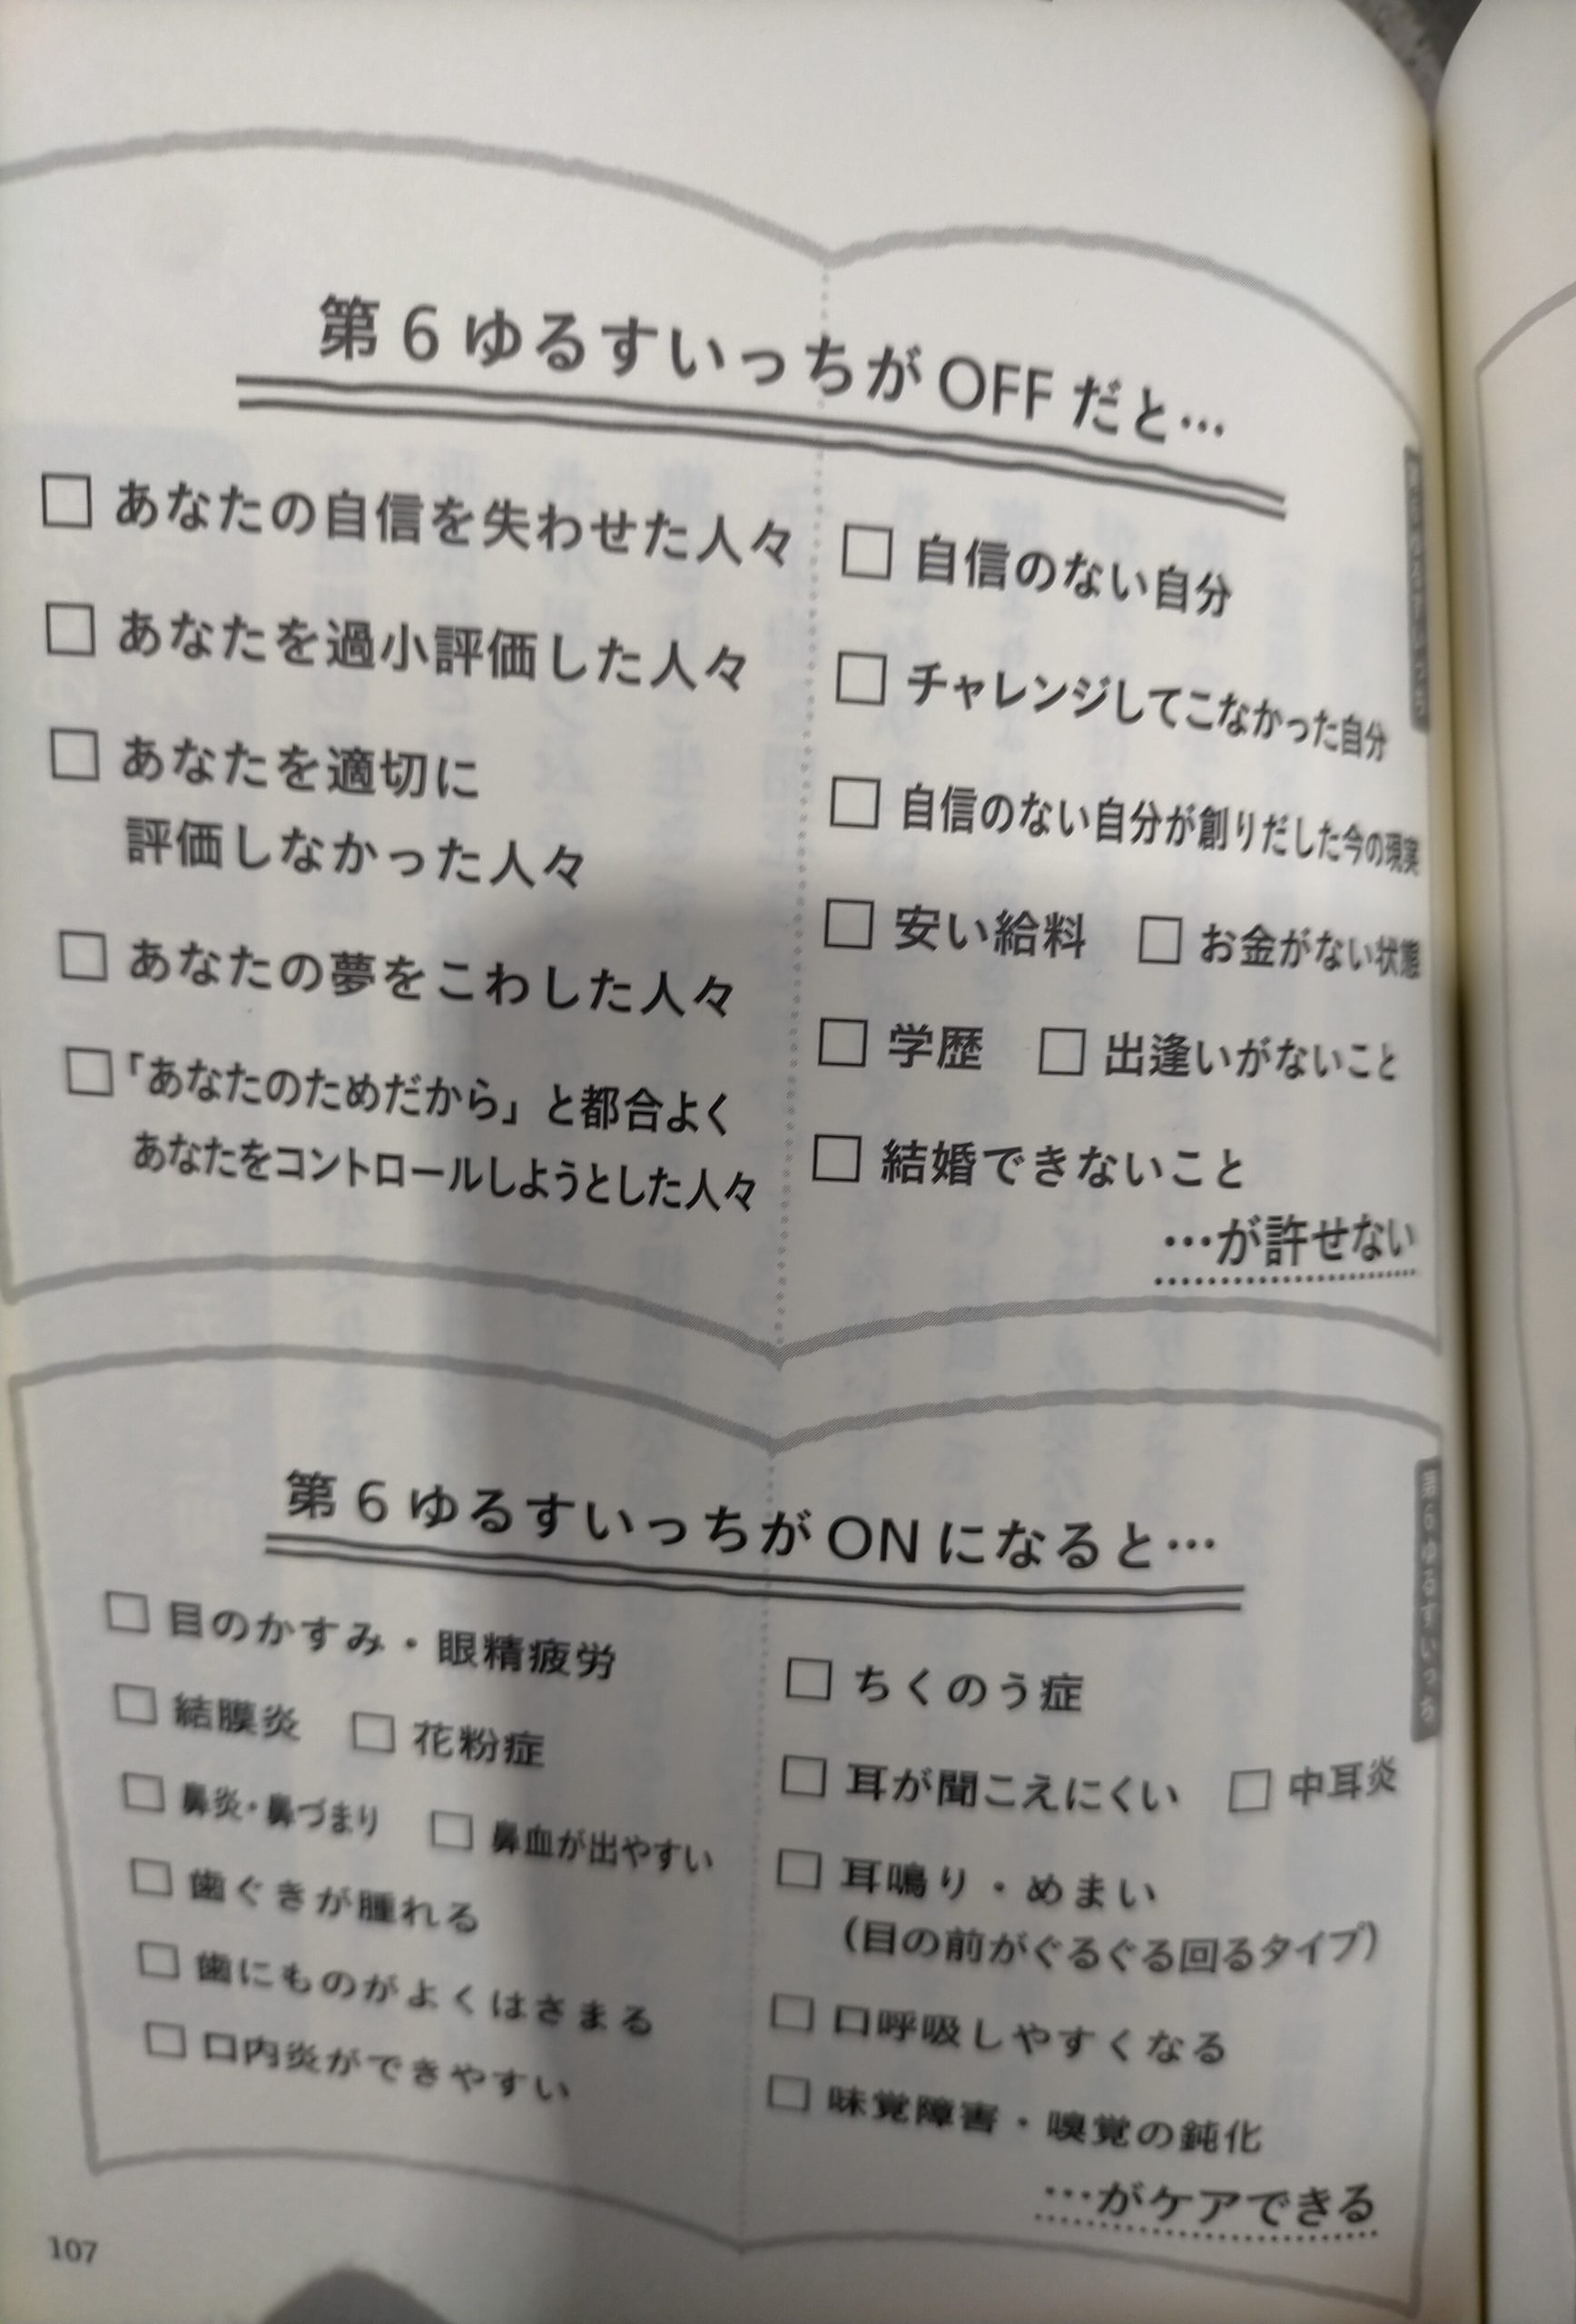 第6ゆるすいっちがOFFだと…
□ あなたの自信を失わせた人々
□ あなたを過小評価した人々
□ あなたを適切に
評価しなかった人々
□ あなたの夢をこわした人々
□「あなたのためだから」と都合よく
あなたをコントロールしようとした人々
□ 自信のない自分
□ チャレンジしてこなかった自分
□ 自信のない自分が創りだした今の現実
□ 安い給料 □ お金がない状態
□ 学歴 □ 出逢いがないこと
□ 結婚できないこと
…が許せない
第6ゆるすいっちがONになると…
□ 目のかすみ・眼精疲労
□ 結膜炎 □ 花粉症
□ 鼻炎・鼻づまり □ 鼻血が出やすい
□ 歯ぐきが腫れる
□ 歯にものがよくはさまる
□ 口内炎ができやすい
□ ちくのう症
□ 耳が聞こえにくい □ 中耳炎
□ 耳鳴り・めまい
(目の前がぐるぐる回るタイプ)
□ 口呼吸しやすくなる
□ 味覚障害・嗅覚の鈍化
…がケアできる
第6ゆるすいっち
107